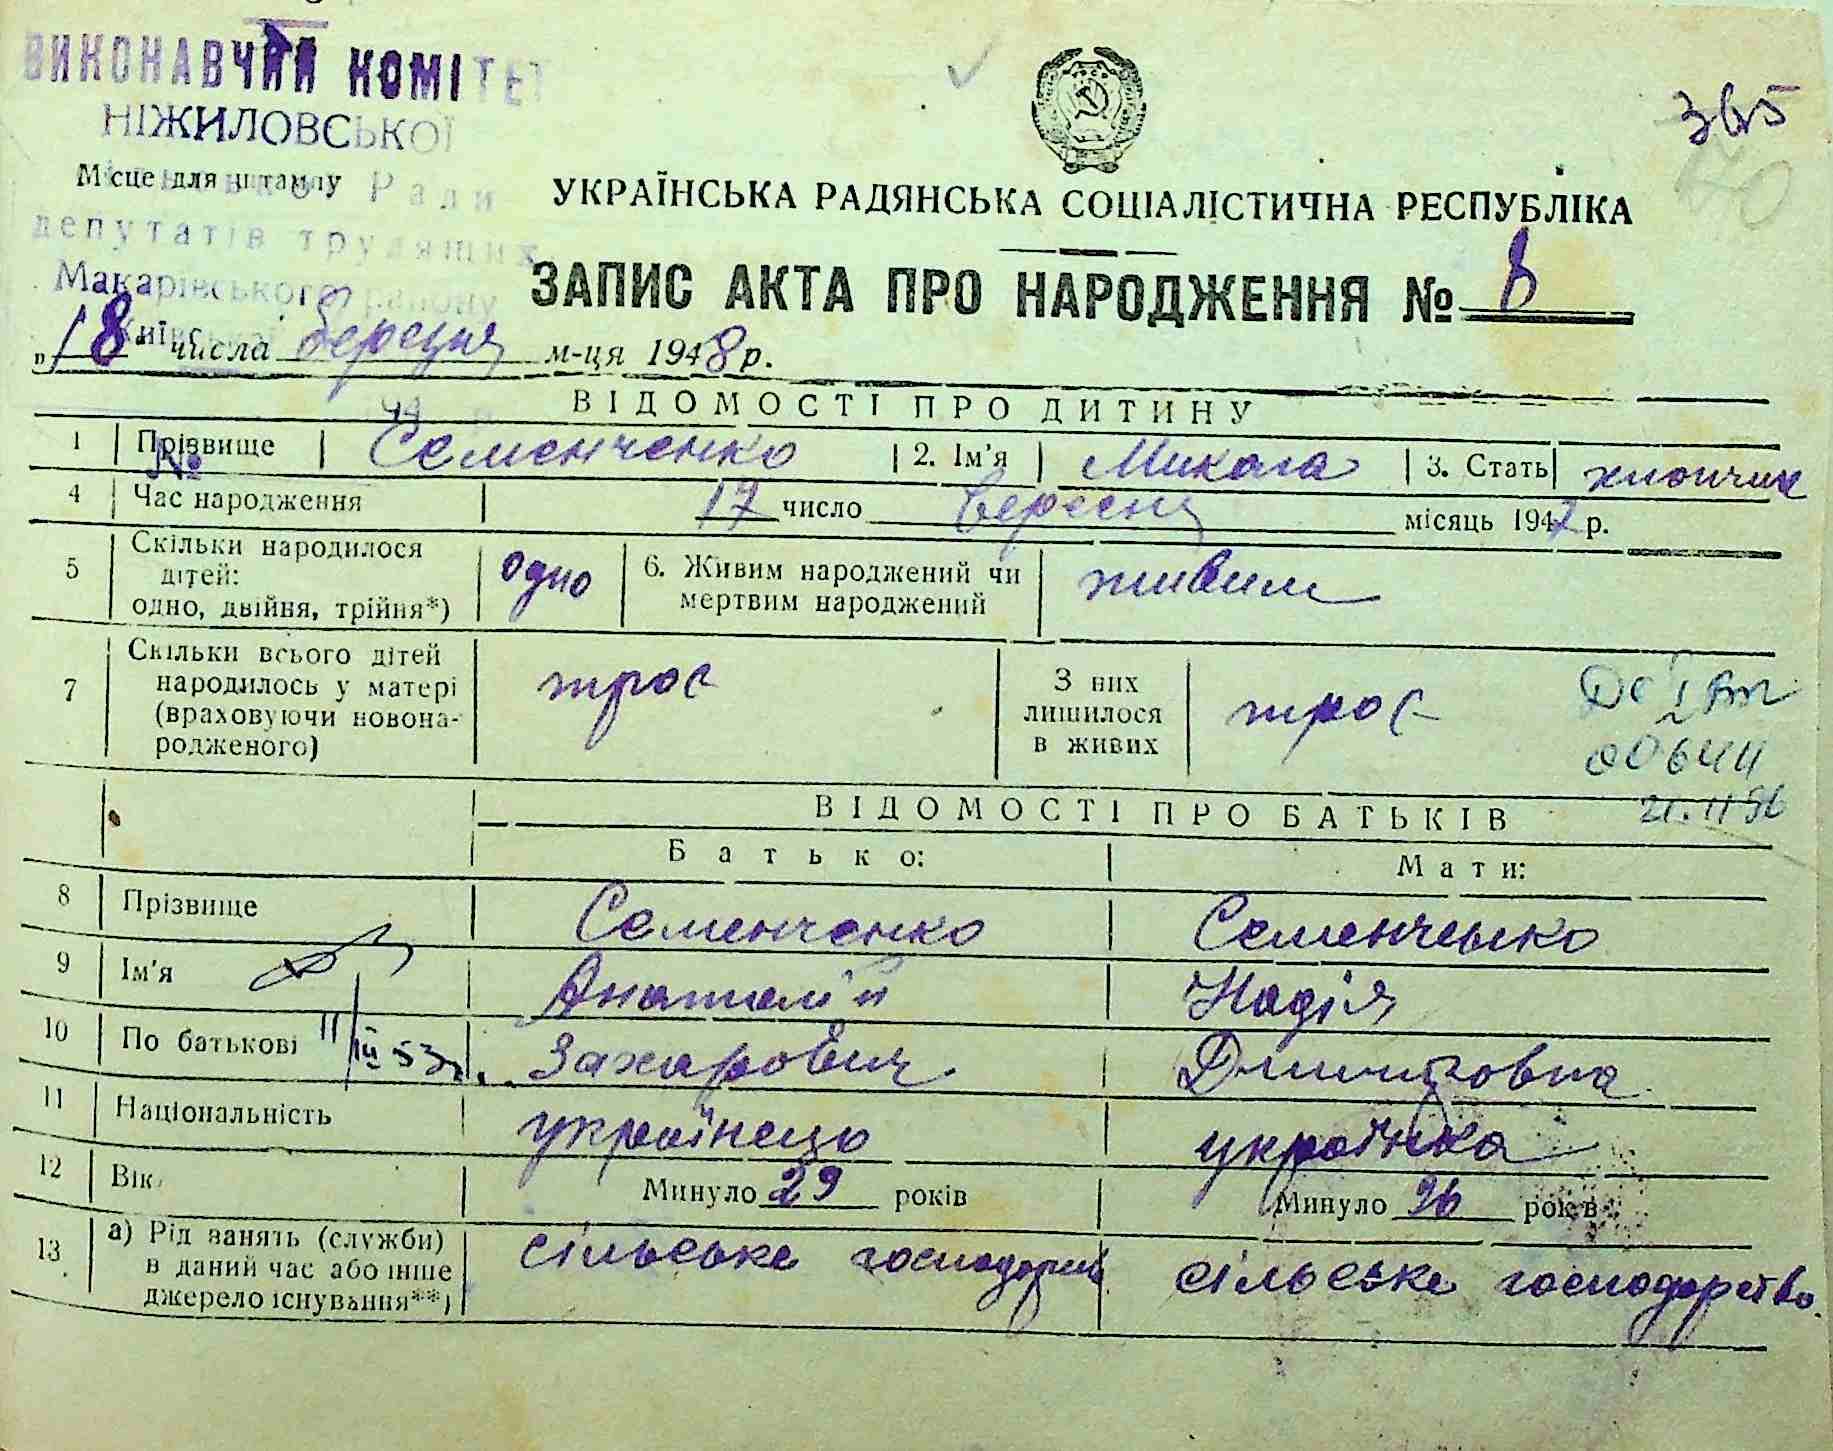 ВИКОНАВЧИЙ КОМІТЕТ
НІЖИЛОВСЬКОЇ
365
Місце для штампу
Ради
УКРАЇНСЬКА РАДЯНСЬКА СОЦІАЛІСТИЧНА РЕСПУБЛІКА
депутатів трудящих
Макарівського району
ЗАПИС АКТА ПРО НАРОДЖЕННЯ № 8
„18" числа березня м-ця 1948 р.
ВІДОМОСТІ ПРО ДИТИНУ
1 Прізвище Семенченко 2. Ім'я Микола 3. Стать хлопчик
№
4 Час народження 17 число вересня місяць 1947 р.
5 Скільки народилося дітей: одно, двійня, трійня*) одно 6. Живим народжений чи мертвим народжений живим
7 Скільки всього дітей народилось у матері (враховуючи новонародженого) троє З них лишилося в живих троє
00644
21.11 56
ВІДОМОСТІ ПРО БАТЬКІВ
Батько: Мати:
8 Прізвище Семенченко Семенченко
9 Ім'я Анатолій Надія
10 По батькові 11/III 53 г. Захарович Дмитровна
11 Національність українець українка
12 Вік Минуло 29 років Минуло 26 років
13 а) Рід занять (служби) в даний час або інше джерело існування**) сільське господарст сільське господарство.